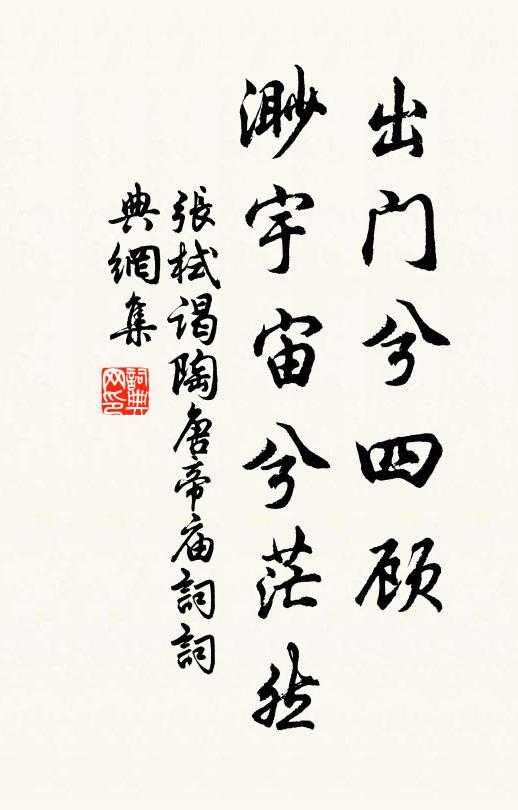 出门兮四顾
渺宇宙兮茫然
張栻谒陶唐帝庙詞詞
典網集
詞典
网印